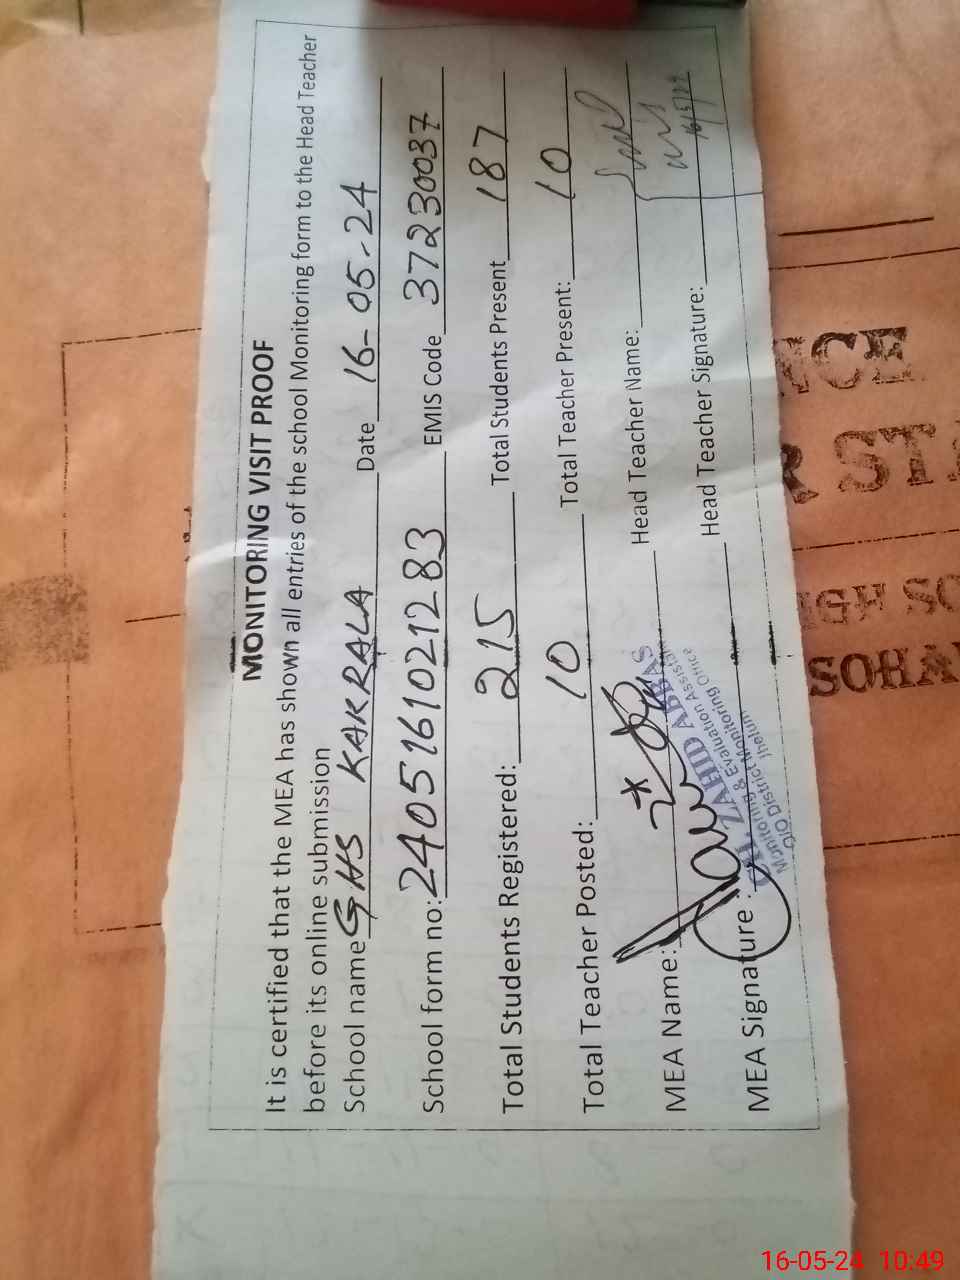 MONITORING VISIT PROOF
It is certified that the MEA has shown all entries of the school Monitoring form to the Head Teacher
before its online submission
School name GHS KAKRALA Date 16-05-24
School form no: 2405161021283 EMIS Code 37230037
Total Students Registered: 215 Total Students Present 187
Total Teacher Posted: 10 Total Teacher Present: 10
MEA Name: Head Teacher Name:
MEA Signature: Head Teacher Signature:
CH. ZAHID ABBAS
Monitoring & Evaluation Assistant
O/O District Monitoring Office
Jhelum
NCE
R ST
IGH SC
SOHA
16-05-24 10:49